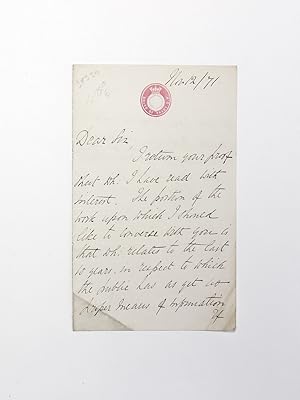 Nov 12/71
Dear Sir,
I return your proof
sheet wh. I have read with
interest. The portion of the
work upon which I should
like to converse with you is
that wh. relates to the last
10 years, in respect to which
the public has as yet no
proper means of information